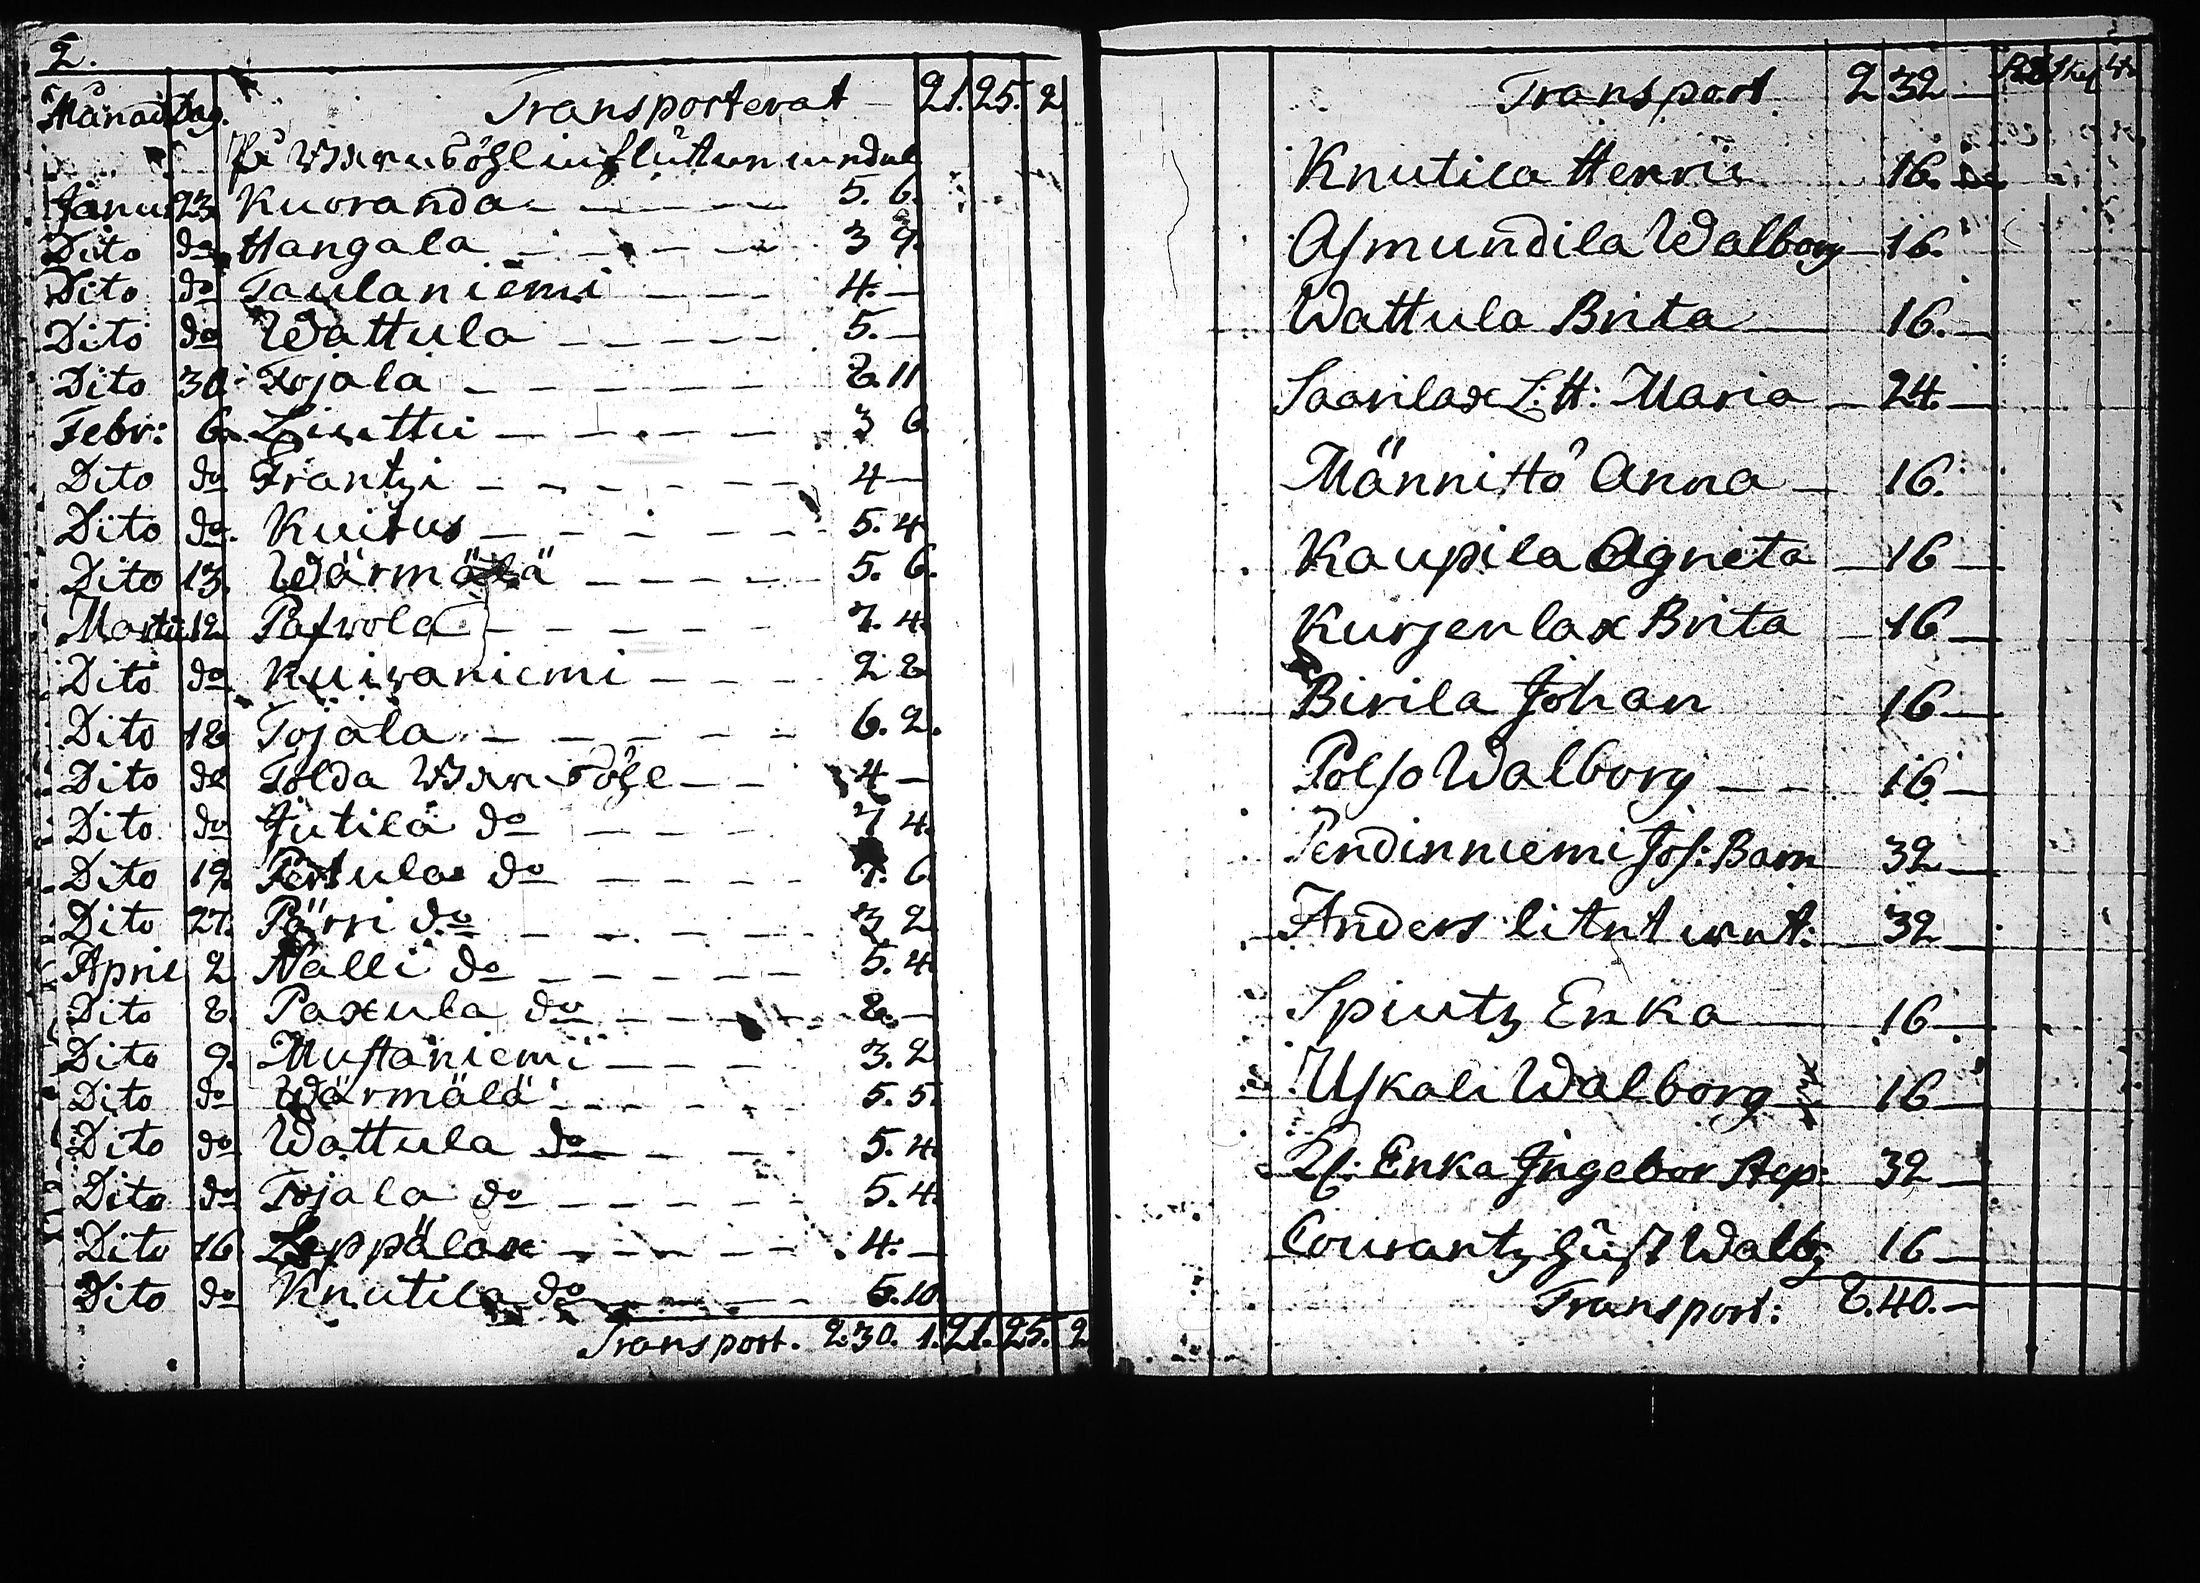 2.
Månad Dag. Transporterat 21. 25. 2
På
Janu: 23 Kuoranda 5. 6.
Dito do Hangala 3 9.
Dito do Taulaniemi 4. —
Dito do Wattula 5. —
Dito 30 Tojala 8. 11
Febr: 6. Liuttu 3 6
Dito do Frantzi 4 —
Dito do. Kuitus 5. 4
Dito 13. Wärmälä 5. 6.
Marti 12 Paswola 7. 4
Dito do Kuivaniemi 2 8
Dito 18 Tojala 6. 2.
Dito do Tolda 4 —
Dito do Jutila do 7 4.
Dito 19. Pertula do 7. 6
Dito 27. Pärri do 3 2
April 2 Nalli do 5. 4
Dito 8. Paxula do 8. —
Dito 9. Mustaniemi 3. 2
Dito do Wärmälä 5. 5.
Dito do Wattula do 5. 4
Dito do Tojala do 5. 4.
Dito 16 Leppälax 4. —
Dito do Knutila do 5. 10
Transport. 2. 30. 1. 21. 25. 2
Transport 2 32 —
Knutila Henric 16. —
Asmundila Walborg 16.
Wattula Brita 16. —
Saarilax L: H: Maria 24. —
Männittö Anna 16.
Kaupila Agneta 16 —
Kurjenlax Brita 16 —
Birila Johan 16 —
Polso Walborg 16 —
Pendinniemi Jos: Barn 32 —
Anders 32 —
Spiutz Erika 16 —
Uskali Walborg 16 —
Erika Ingebor Step: 32 —
Courantz Walbg 16 —
Transport: 8. 40. —